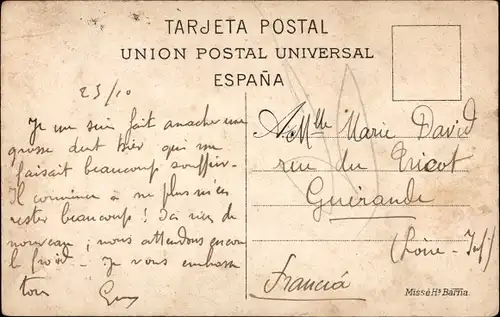 TARJETA POSTAL
UNION POSTAL UNIVERSAL
ESPAÑA
23/10
Je me suis fait arracher une
grosse dent hier qui me
faisait beaucoup souffrir.
Il commence à ne plus m'en
rester beaucoup ! Ici rien de
nouveau ; nous attendons encore
le froid. Je vous embrasse
tous Guy
A Mlle Marie David
rue du Tricot
Guérande
(Loire-Inf)
Francia
Missé Hs Barna.